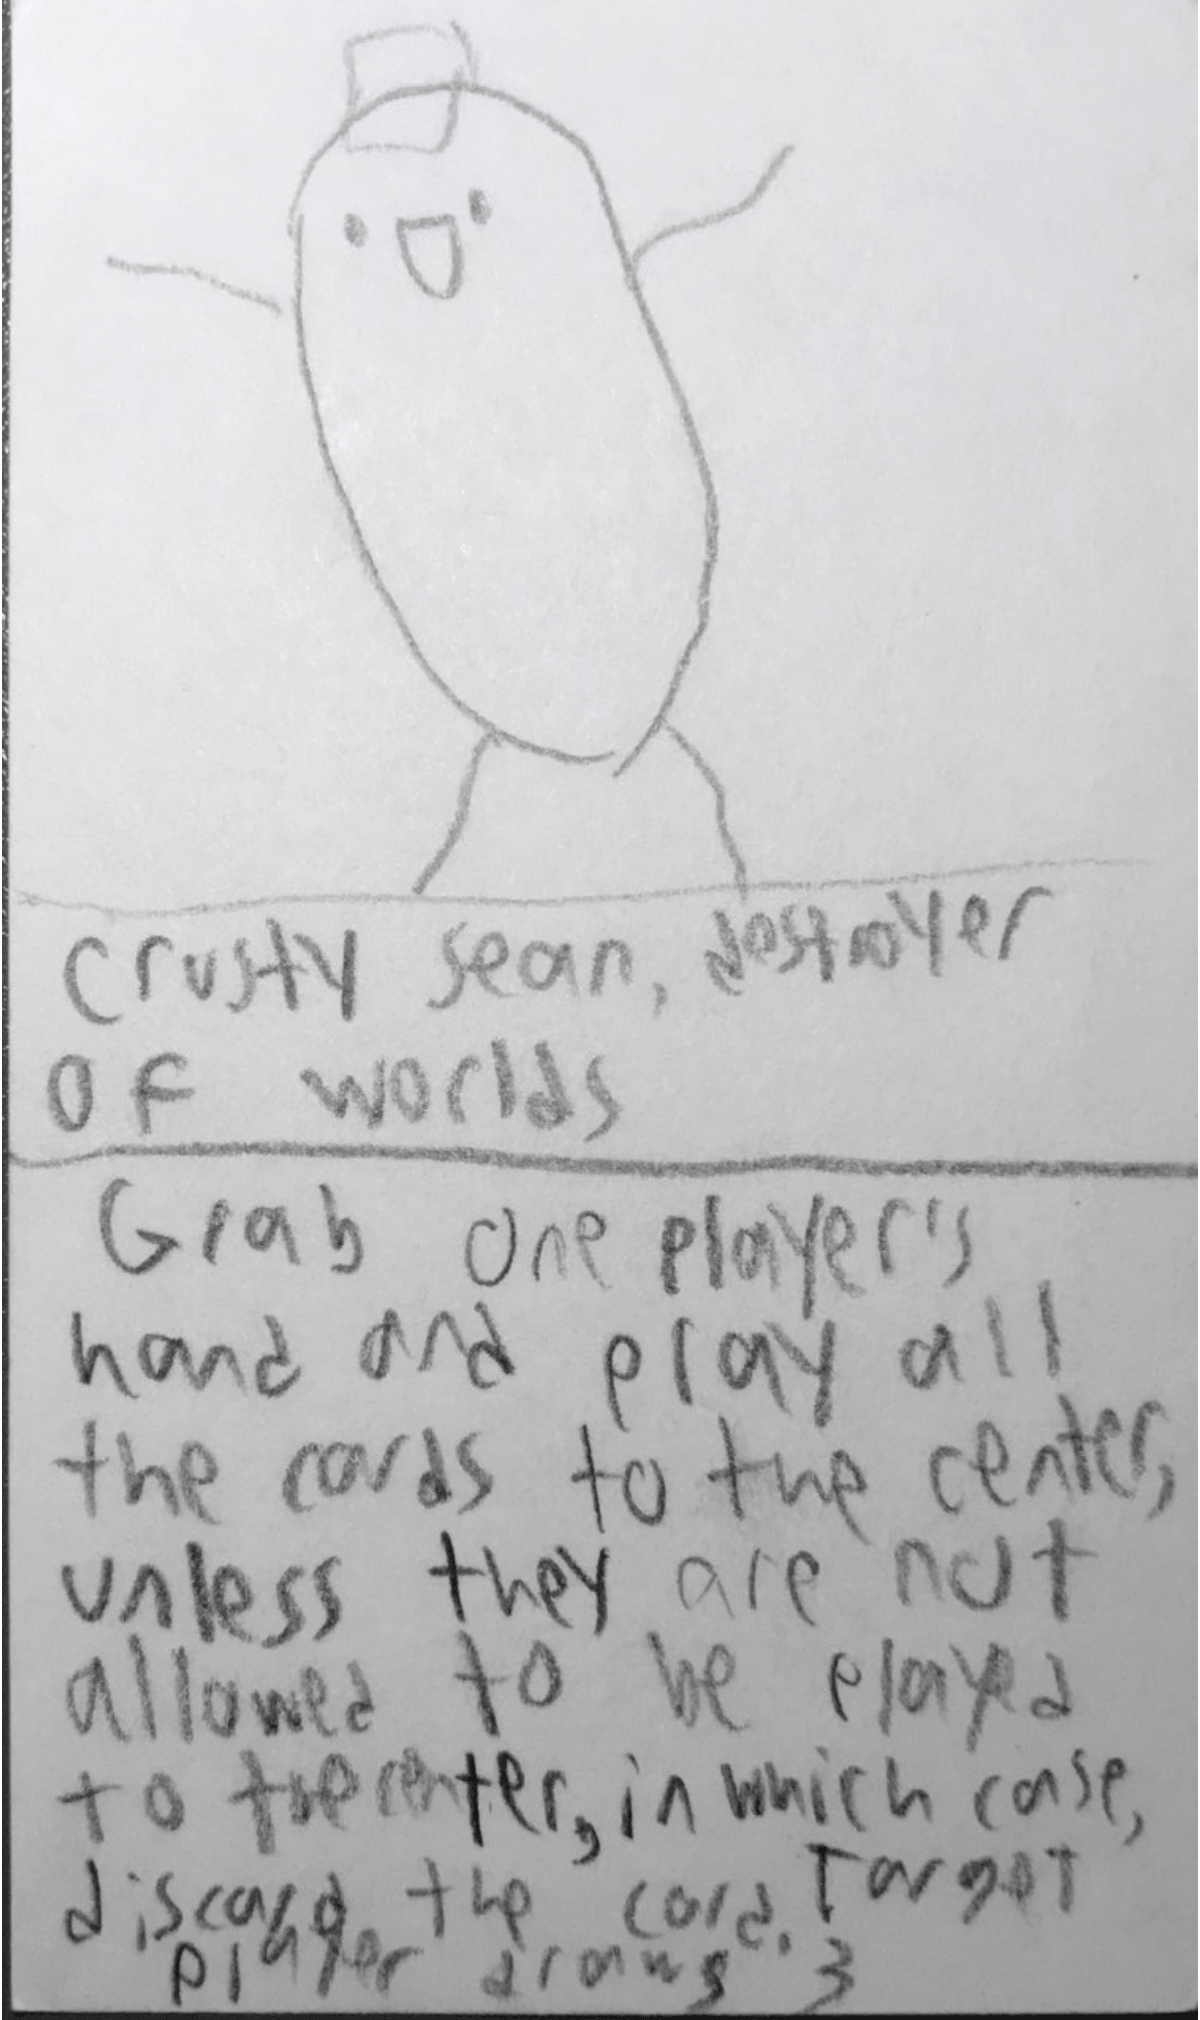 Crusty Sean, destroyer
of worlds
Grab one player's
hand and play all
the cards to the center,
unless they are not
allowed to be played
to the center, in which case,
discard the card. Target
player draws 3